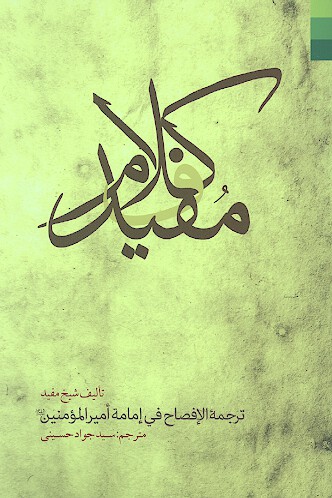 کلام مفید
تالیف شیخ مفید
ترجمة الإفصاح في إمامة أمیرالمؤمنین
مترجم: سید جواد حسینی